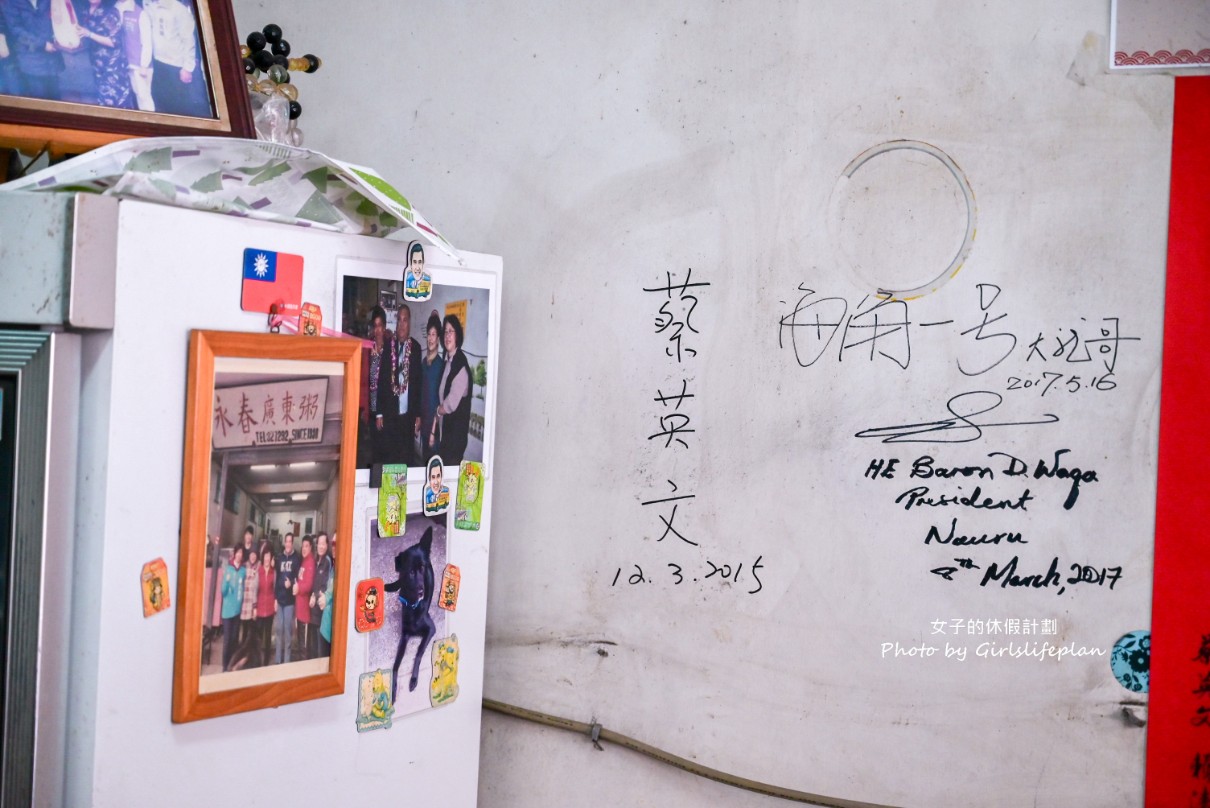 永春廣東粥
蔡英文
12.3.2015
海角一号 大砲哥
2017.5.16
HE Baron D. Waqa
President
Nauru
8th March, 2017
女子的休假計劃
Photo by Girlslifeplan